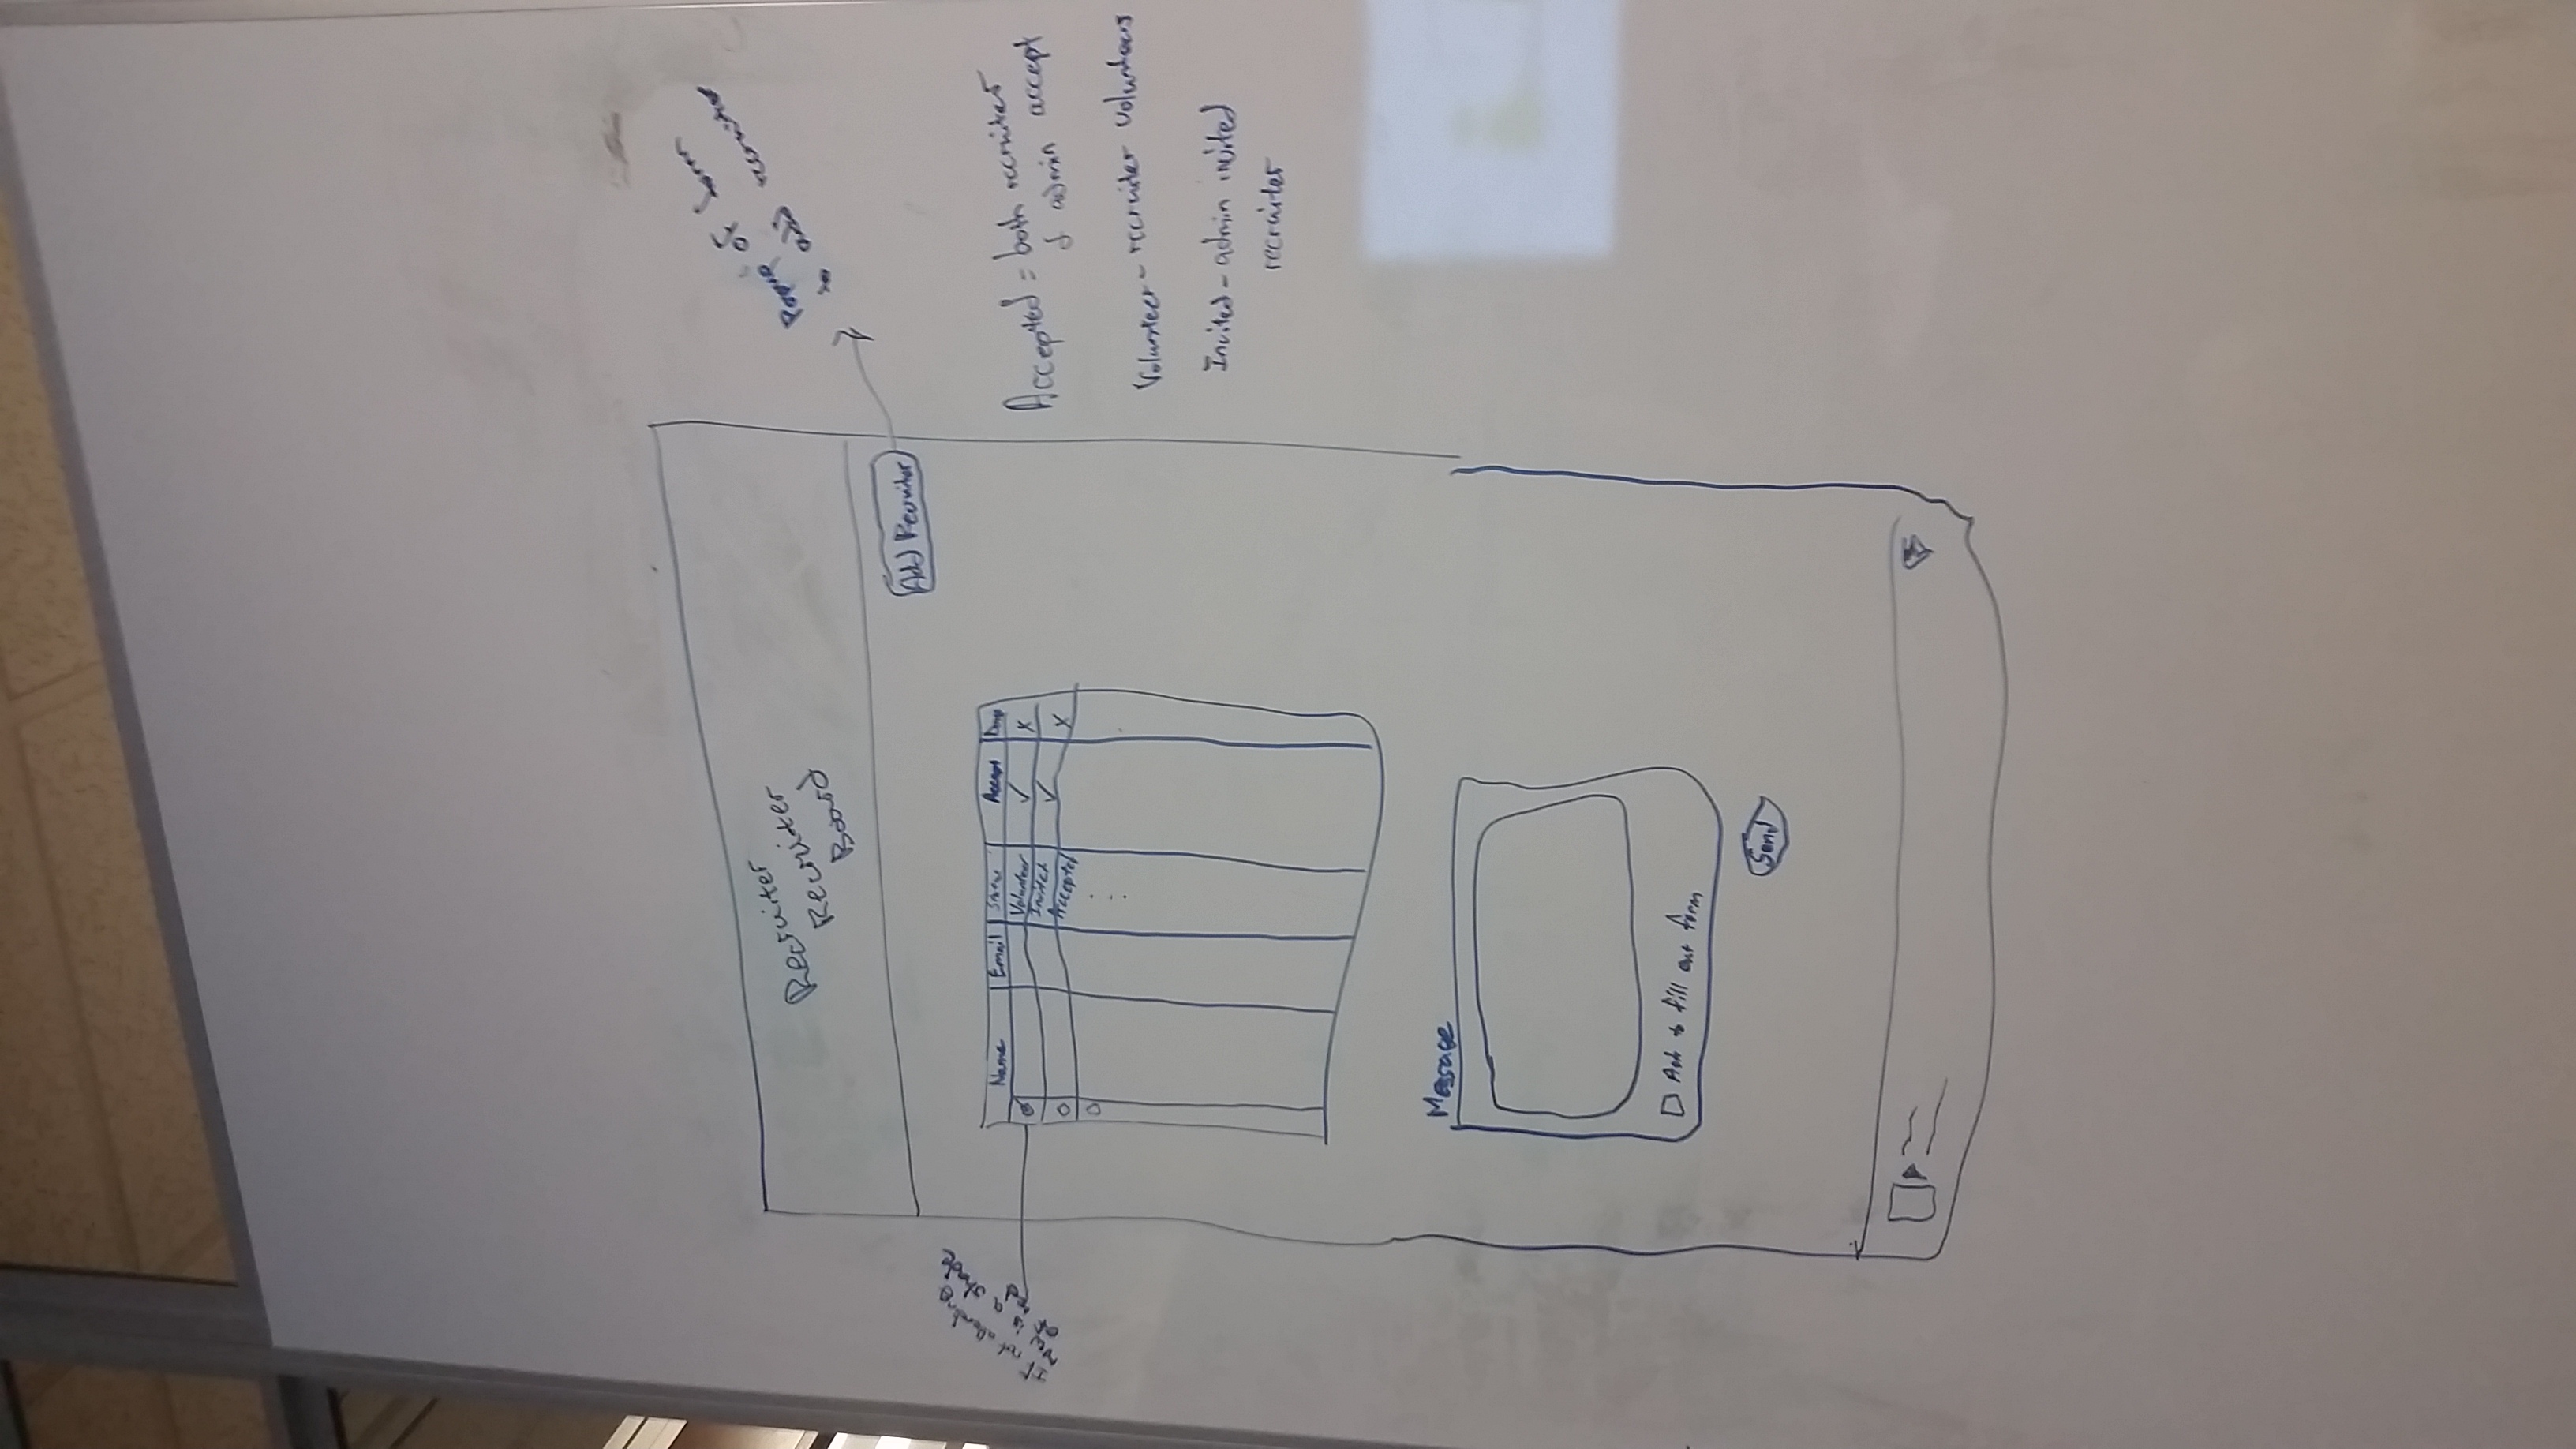 Recruiter
Recruiter
Board
Popup of form
to add recruiter
Add Recruiter
If not attending
row is a shade
of red
Name Email Status Accept Deny
Volunteer ✓ X
Invited ✓ X
Accepted
Accepted = both recruiter
& admin accept
Volunteer - recruiter volunteers
Invited - admin invited
recruiter
Message
Ask to fill out form
Send